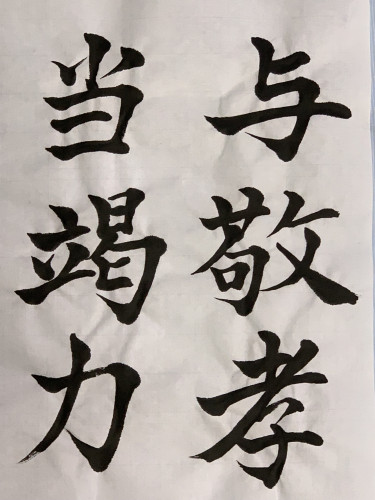 与敬孝
当竭力